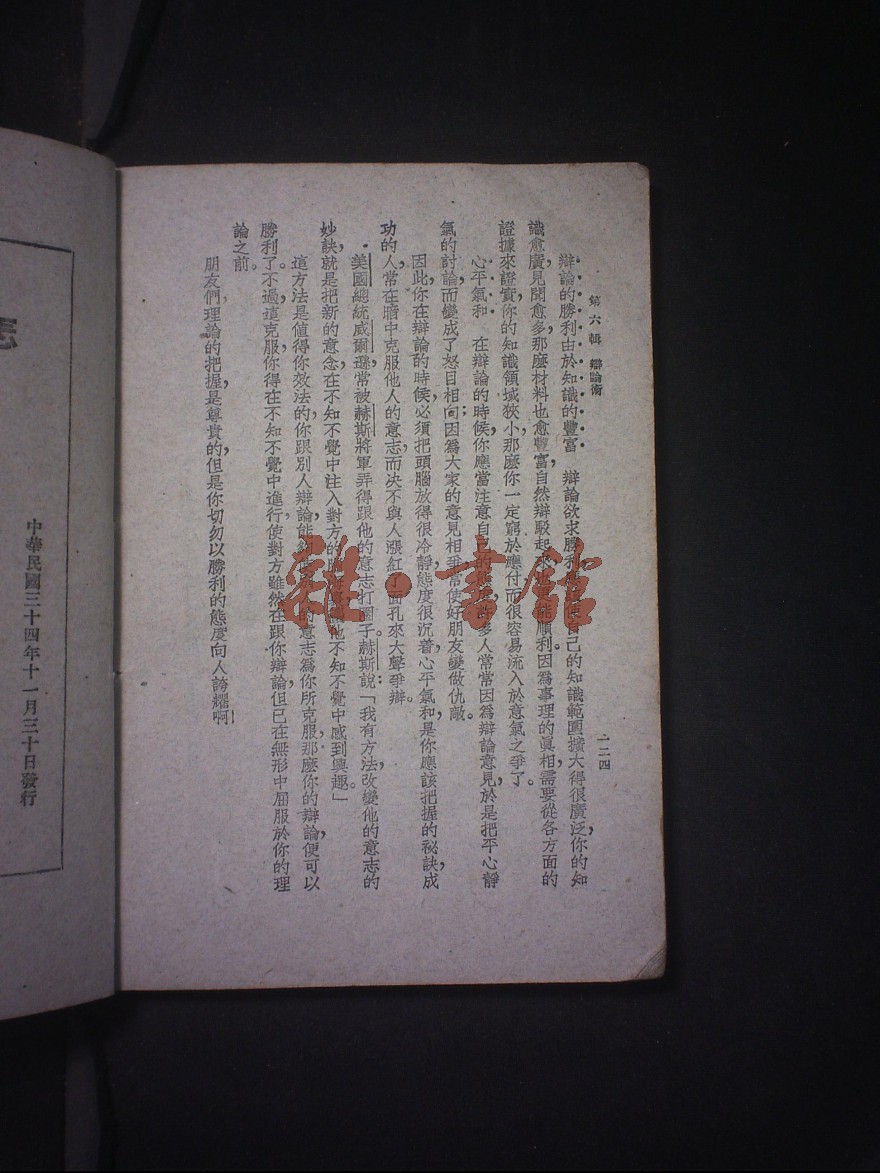 第六輯　辯論術
一二四
辯論的勝利由於知識的豐富　辯論欲求勝利，自己的知識範圍擴大得很廣泛，你的知
識愈廣，見聞愈多，那麼材料也愈豐富，自然辯駁起來順利。因為事理的眞相，需要從各方面的
證據來證實，你的知識領域狹小，那麼你一定窮於應付，而很容易流入於意氣之爭了。
心平氣和　在辯論的時候，你應當注意自己的態度，許多人常常因為辯論意見，於是把平心靜
氣的討論，而變成了怒目相向；因為大家的意見相爭，常使好朋友變做仇敵。
因此，你在辯論的時候，必須把頭腦放得很冷靜，態度很沉着，心平氣和是你應該把握的秘訣，成
功的人，常在暗中克服他人的意志，而決不與人漲紅了面孔來大聲爭辯。
美國總統威爾遜，常被赫斯將軍弄得跟他的意志打圈子，赫斯說：「我有方法改變他的意志的
妙訣，就是把新的意念，在不知不覺中注入對方的他不知不覺中感到興趣。」
這方法是值得你效法的，你跟別人辯論，能的意志為你所克服，那麼你的辯論，便可以
勝利了。不過，這克服你得在不知不覺中進行，使對方雖然在跟你辯論，但已在無形中屈服於你的理
論之前。
朋友們，理論的把握是尊貴的，但是你切勿以勝利的態度向人誇耀啊！
雜·書館
中華民國三十四年十一月三十日發行